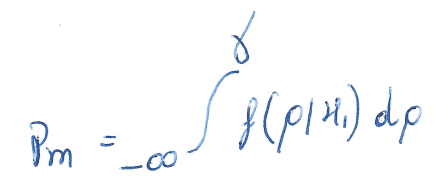 P_m = ∫_{-∞}^{γ} f(ρ|H₁) dρ